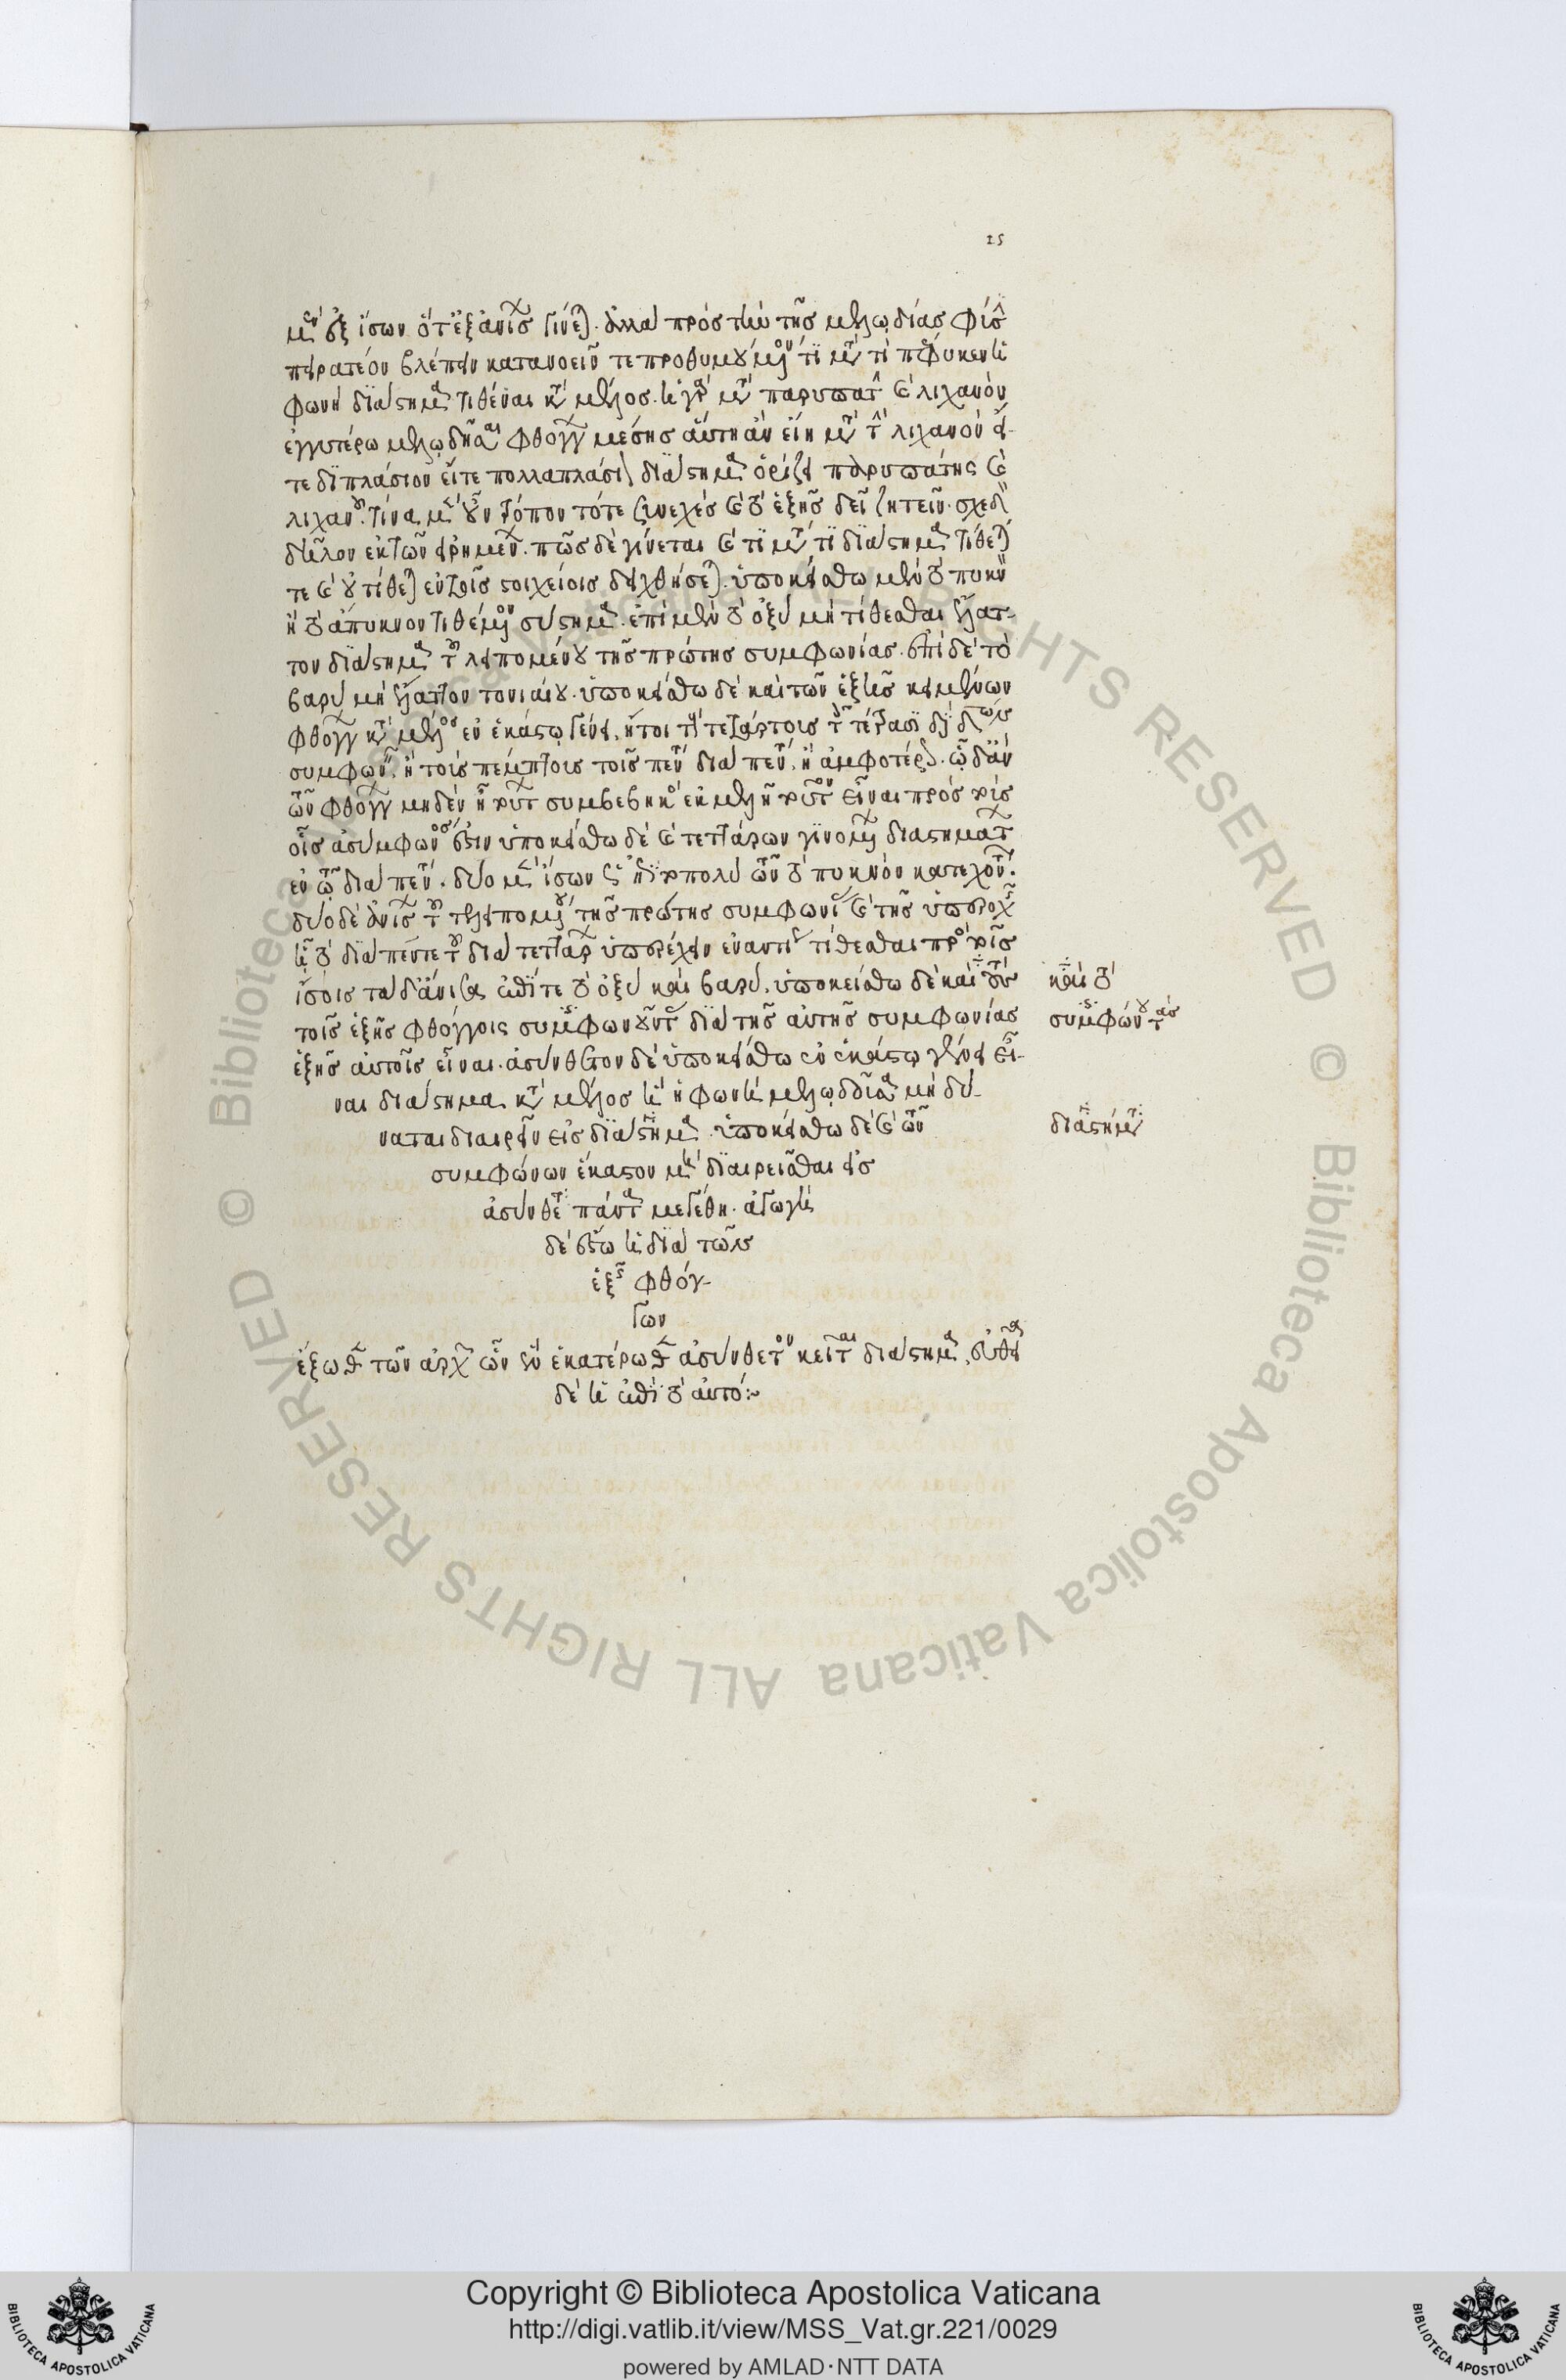 15
μὲν ἐξ ἴσων ὁτὲ ἐξ ἀνίσων γίνεται. ἀλλὰ πρὸς τὴν τῆς μελῳδίας φύσιν
πειρατέον βλέπειν κατανοεῖν τε προθυμούμενον τί μετὰ τί πέφυκεν ἡ
φωνὴ διάστημα τιθέναι κατὰ μέλος. εἰ γὰρ μετὰ παρυπάτην καὶ λιχανὸν
ἐγγυτέρω μελῳδῆσαι φθόγγον μέσης αὕτη ἂν εἴη μετὰ τὴν λιχανὸν εἴ-
τε διπλάσιον εἴτε πολλαπλάσιον διάστημα ὁρίζει παρυπάτης καὶ
λιχανοῦ. τίνα μὲν οὖν τρόπον τό τε συνεχὲς καὶ τὸ ἑξῆς δεῖ ζητεῖν. σχεδὸν
δῆλον ἐκ τῶν εἰρημένων. πῶς δὲ γίνεται καὶ τί μετὰ τί διάστημα τίθεταί
τε καὶ οὐ τίθεται ἐν τοῖς στοιχείοις δειχθήσεται. ὑποκείσθω μετὰ τὸ πυκνὸν
ἢ τὸ ἄπυκνον τιθέμενον σύστημα. ἐπὶ μὲν τὸ ὀξὺ μὴ τίθεσθαι ἔλατ-
τον διάστημα τοῦ λειπομένου τῆς πρώτης συμφωνίας. ἐπὶ δὲ τὸ
βαρὺ μὴ ἔλαττον τονιαίου. ὑποκείσθω δὲ καὶ τῶν ἑξῆς κειμένων
φθόγγων κατὰ μέλος ἐν ἑκάστῳ γένει. ἤτοι τοὺς τετάρτους τοῖς τέτρασι διὰ τεσσάρων
συμφωνεῖν. ἢ τοὺς πέμπτους τοῖς πέντε διὰ πέντε. ἢ ἀμφοτέρως. ᾧ δ' ἂν
τῶν φθόγγων μηδὲν ᾖ τούτων συμβεβηκὸς ἐκμελῆ τοῦτον εἶναι πρὸς τούτους
οἷς ἀσύμφωνός ἐστιν ὑποκείσθω δὲ καὶ τεττάρων γινομένων διαστημάτων
ἐν τῷ διὰ πέντε. δύο μὲν ἴσων ὡς ἐπὶ τὸ πολὺ τῶν τὸ πυκνὸν κατεχόντων.
δύο δὲ ἀνίσων τοῦ τε λειπομένου τῆς πρώτης συμφωνίας καὶ τῆς ὑπεροχῆς
ᾗ τὸ διὰ πέντε τοῦ διὰ τεττάρων ὑπερέχει ἐναντίως τίθεσθαι πρὸς τοῖς
ἴσοις τὰ δ' ἄνισα ἐπί τε τὸ ὀξὺ καὶ βαρύ. ὑποκείσθω δὲ καὶ τοὺς
καὶ τὸ
τοῖς ἑξῆς φθόγγοις συμφωνοῦντας διὰ τῆς αὐτῆς συμφωνίας
συμφώνους τὰς
ἑξῆς αὐτοῖς εἶναι. ἀσύνθετον δὲ ὑποκείσθω ἐν ἑκάστῳ γένει εἶ-
ναι διάστημα κατὰ μέλος ὃ ἡ φωνὴ μελῳδοῦσα μὴ δύ-
ναται διαιρεῖν εἰς διάστημα. ὑποκείσθω δὲ καὶ τῶν
διαστήματα
συμφώνων ἕκαστον μὴ διαιρεῖσθαι εἰς
ἀσύνθετα πάντα μεγέθη. ἀγωγὴ
δὲ ἔστω ἡ διὰ τῶν
ἑξῆς φθόγ-
γων
ἔξωθεν τῶν ἀρχῶν ὧν ἓν ἑκατέρωθεν ἀσύνθετον κεῖται διάστημα, εὐθεῖα
δὲ ἡ ἐπὶ τὸ αὐτό:~
Copyright © Biblioteca Apostolica Vaticana
http://digi.vatlib.it/view/MSS_Vat.gr.221/0029
powered by AMLAD·NTT DATA
© Biblioteca Apostolica Vaticana ALL RIGHTS RESERVED
© Biblioteca Apostolica Vaticana ALL RIGHTS RESERVED
BIBLIOTECA APOSTOLICA VATICANA
BIBLIOTECA APOSTOLICA VATICANA